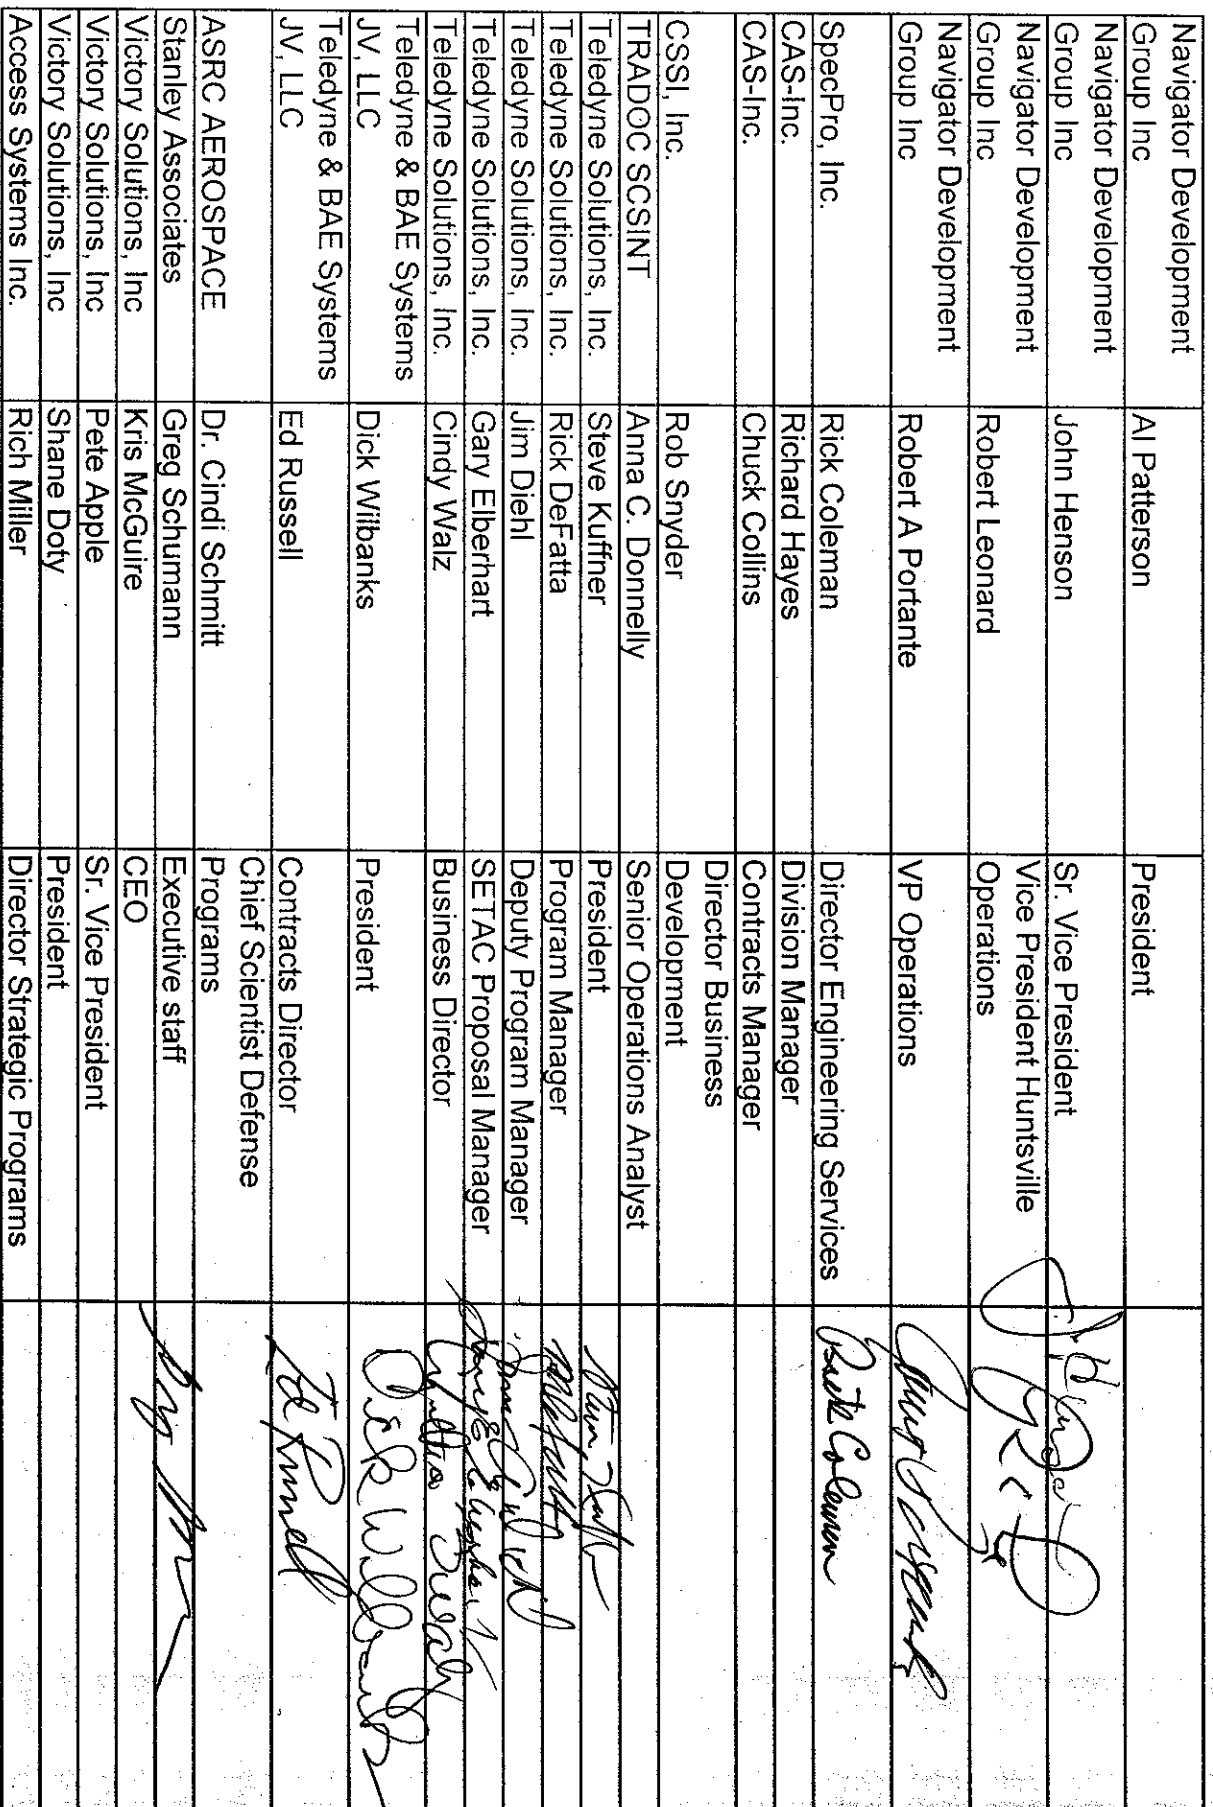 Navigator Development
Group Inc
Al Patterson
President
Navigator Development
Group Inc
John Henson
Sr. Vice President
Navigator Development
Group Inc
Robert Leonard
Vice President Huntsville
Operations
Navigator Development
Group Inc
Robert A Portante
VP Operations
SpecPro, Inc.
Rick Coleman
Director Engineering Services
Coleman
CAS-Inc.
Richard Hayes
Division Manager
CAS-Inc.
Chuck Collins
Contracts Manager
CSSI, Inc.
Rob Snyder
Director Business
Development
TRADOC SCSINT
Anna C. Donnelly
Senior Operations Analyst
Teledyne Solutions, Inc.
Steve Kuffner
President
Teledyne Solutions, Inc.
Rick DeFatta
Program Manager
Teledyne Solutions, Inc.
Jim Diehl
Deputy Program Manager
Teledyne Solutions, Inc.
Gary Elberhart
SETAC Proposal Manager
Teledyne Solutions, Inc.
Cindy Walz
Business Director
Teledyne & BAE Systems
JV, LLC
Dick Wilbanks
President
Dick Wilbanks
Teledyne & BAE Systems
JV, LLC
Ed Russell
Contracts Director
Ed Russell
ASRC AEROSPACE
Dr. Cindi Schmitt
Chief Scientist Defense
Programs
Stanley Associates
Greg Schumann
Executive staff
Victory Solutions, Inc
Kris McGuire
CEO
Victory Solutions, Inc
Pete Apple
Sr. Vice President
Victory Solutions, Inc
Shane Doty
President
Access Systems Inc.
Rich Miller
Director Strategic Programs